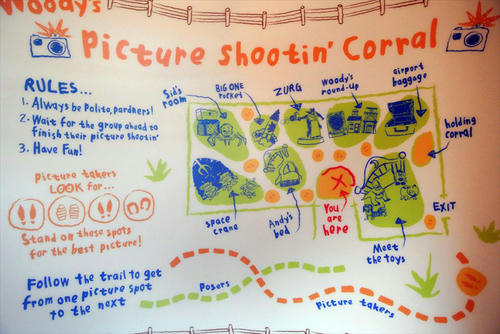 Woody's
Picture Shootin' Corral
RULES...
1. Always be Polite, pardners!
2. Wait for the group ahead to
finish their picture shootin'
3. Have Fun!
picture takers
LOOK for...
Stand on these spots
for the best picture!
Follow the trail to get
from one picture spot
to the next
Sid's
room
BIG ONE
rocket
ZURG
Woody's
round-up
airport
baggage
holding
corral
space
crane
Andy's
bed
You
are
here
Meet
the toys
EXIT
Posers
Picture takers